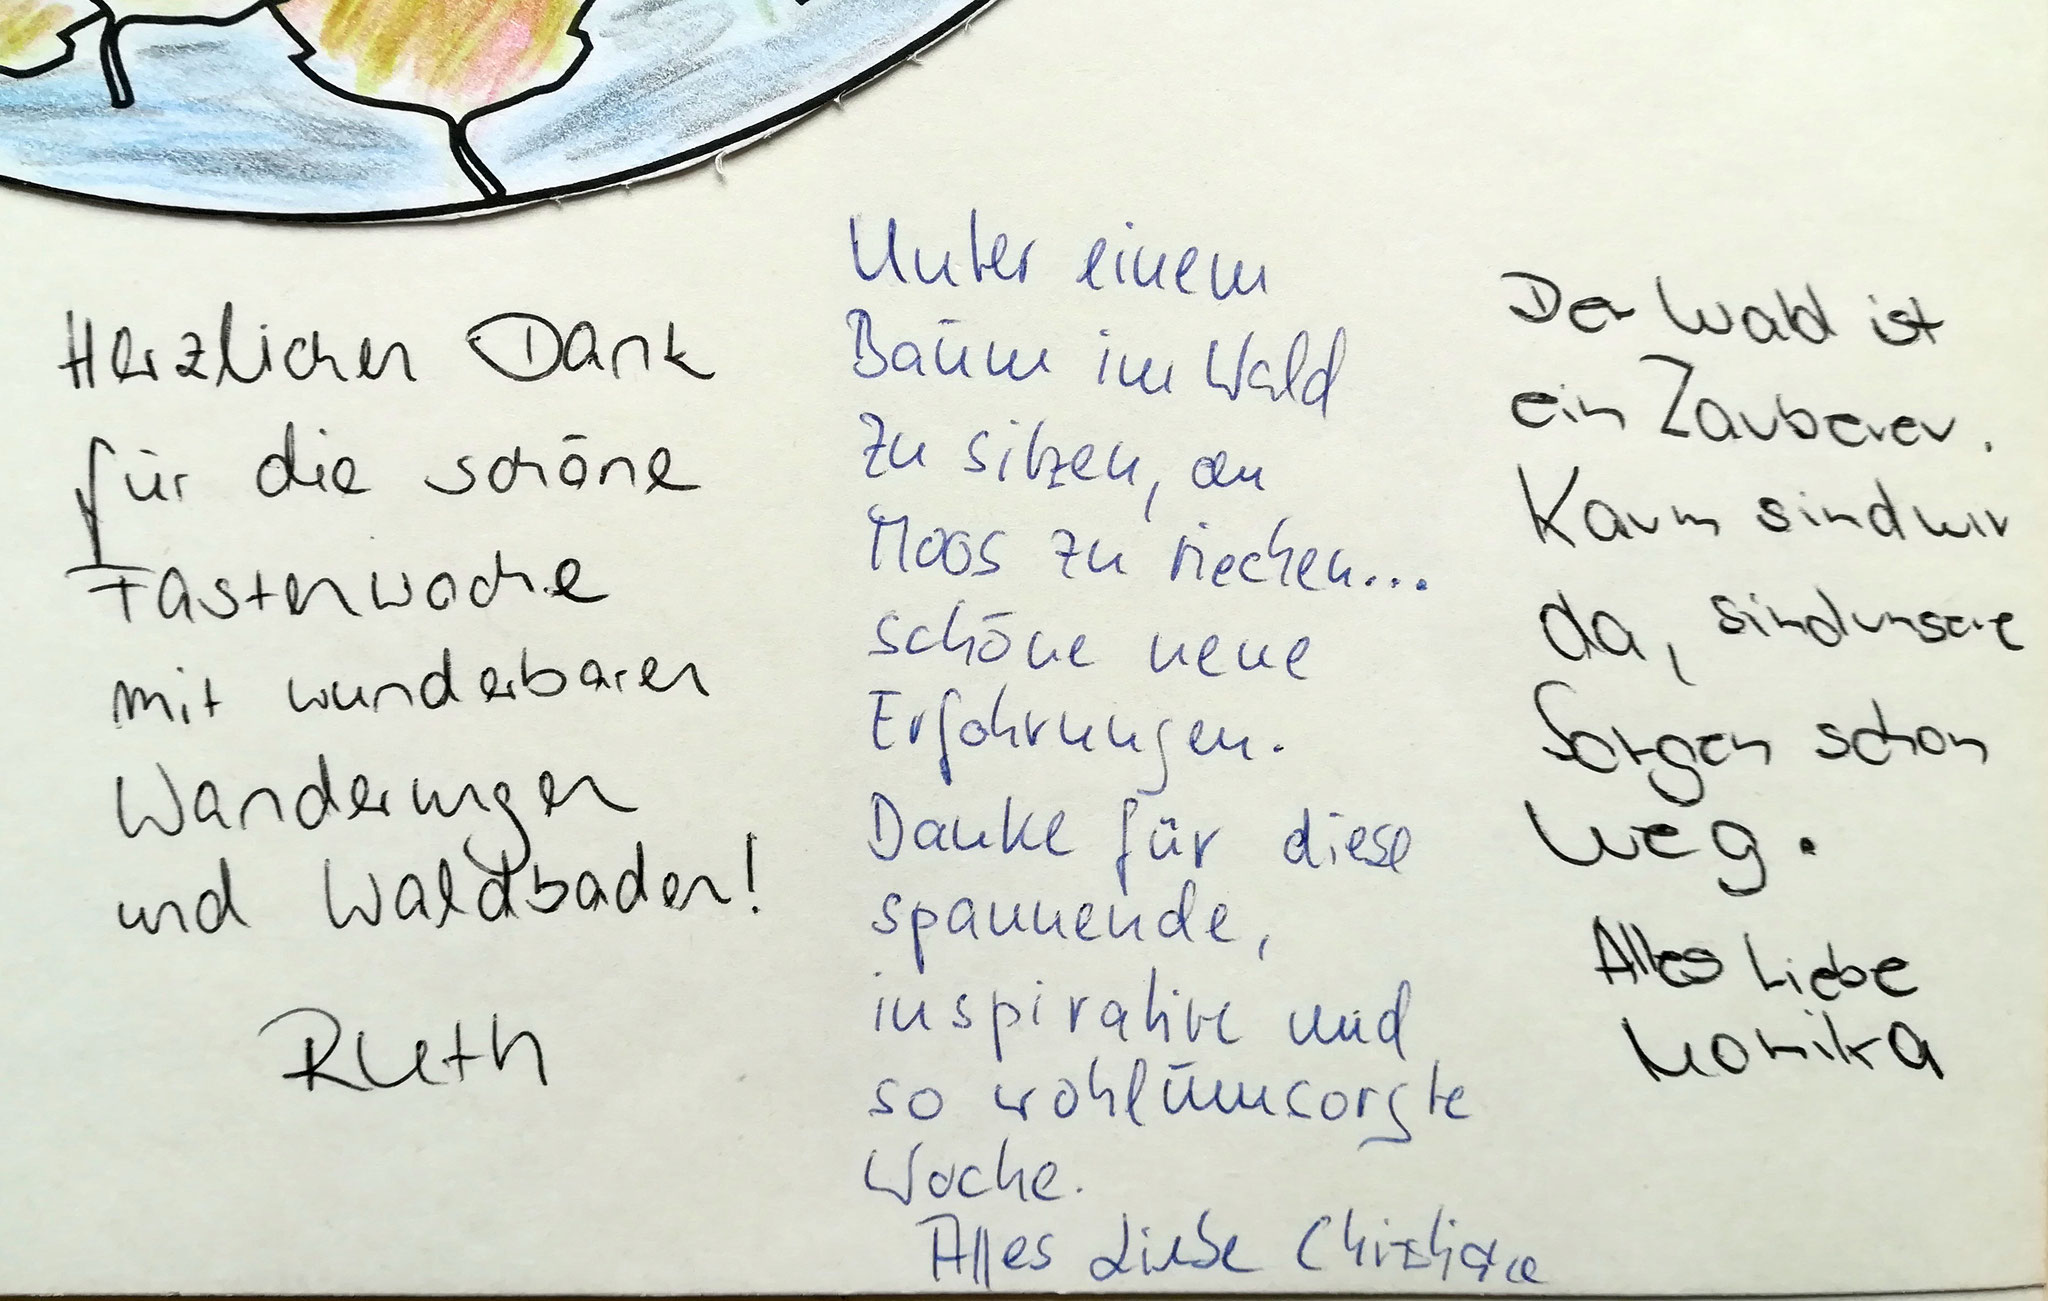 Herzlichen Dank
für die schöne
Fastenwoche
mit wunderbaren
Wanderungen
und Waldbaden!
Ruth
Unter einem
Baum im Wald
zu sitzen, an
Moos zu riechen...
schöne neue
Erfahrungen.
Danke für diese
spannende,
inspirative und
so wohlumsorgte
Woche.
Alles Liebe Christiane
Der Wald ist
ein Zauberer.
Kaum sind wir
da, sind unsere
Sorgen schon
weg.
Alles Liebe
Monika